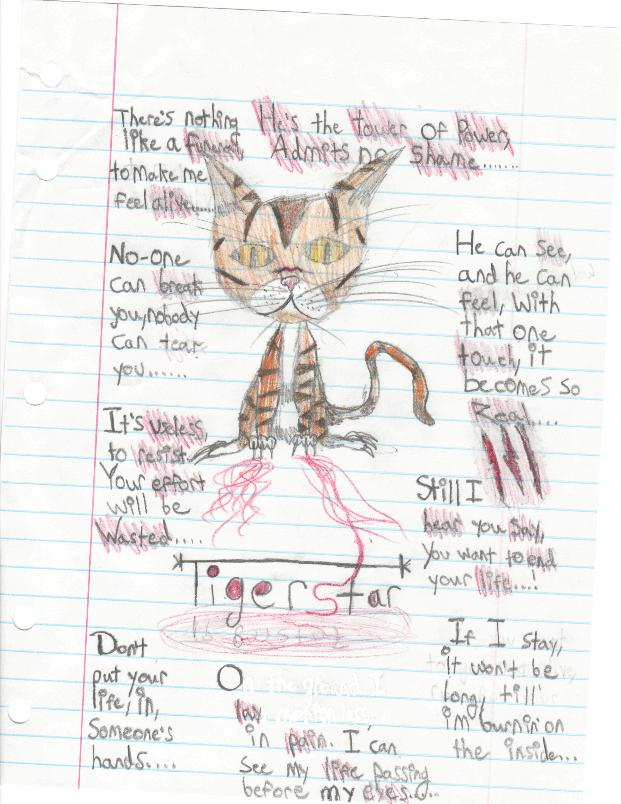 There's nothing
like a funeral,
to make me
feel alive......
He's the tower of Power,
Admits no Shame......
No-one
can break
you, nobody
can tear
you......
He can See,
and he can
feel, With
that one
touch, it
becomes so
Real....
It's useless,
to resist.
Your effort
will be
Wasted.....
Still I
hear you Say,
You want to end
your life...!
Tigerstar
Don't
put your
life, in,
Someone's
hands.....
On the ground I
lay motionless...
in pain. I can
See my life passing
before my eyes.....
If I stay,
it won't be
long, till
im burnin' on
the inside...